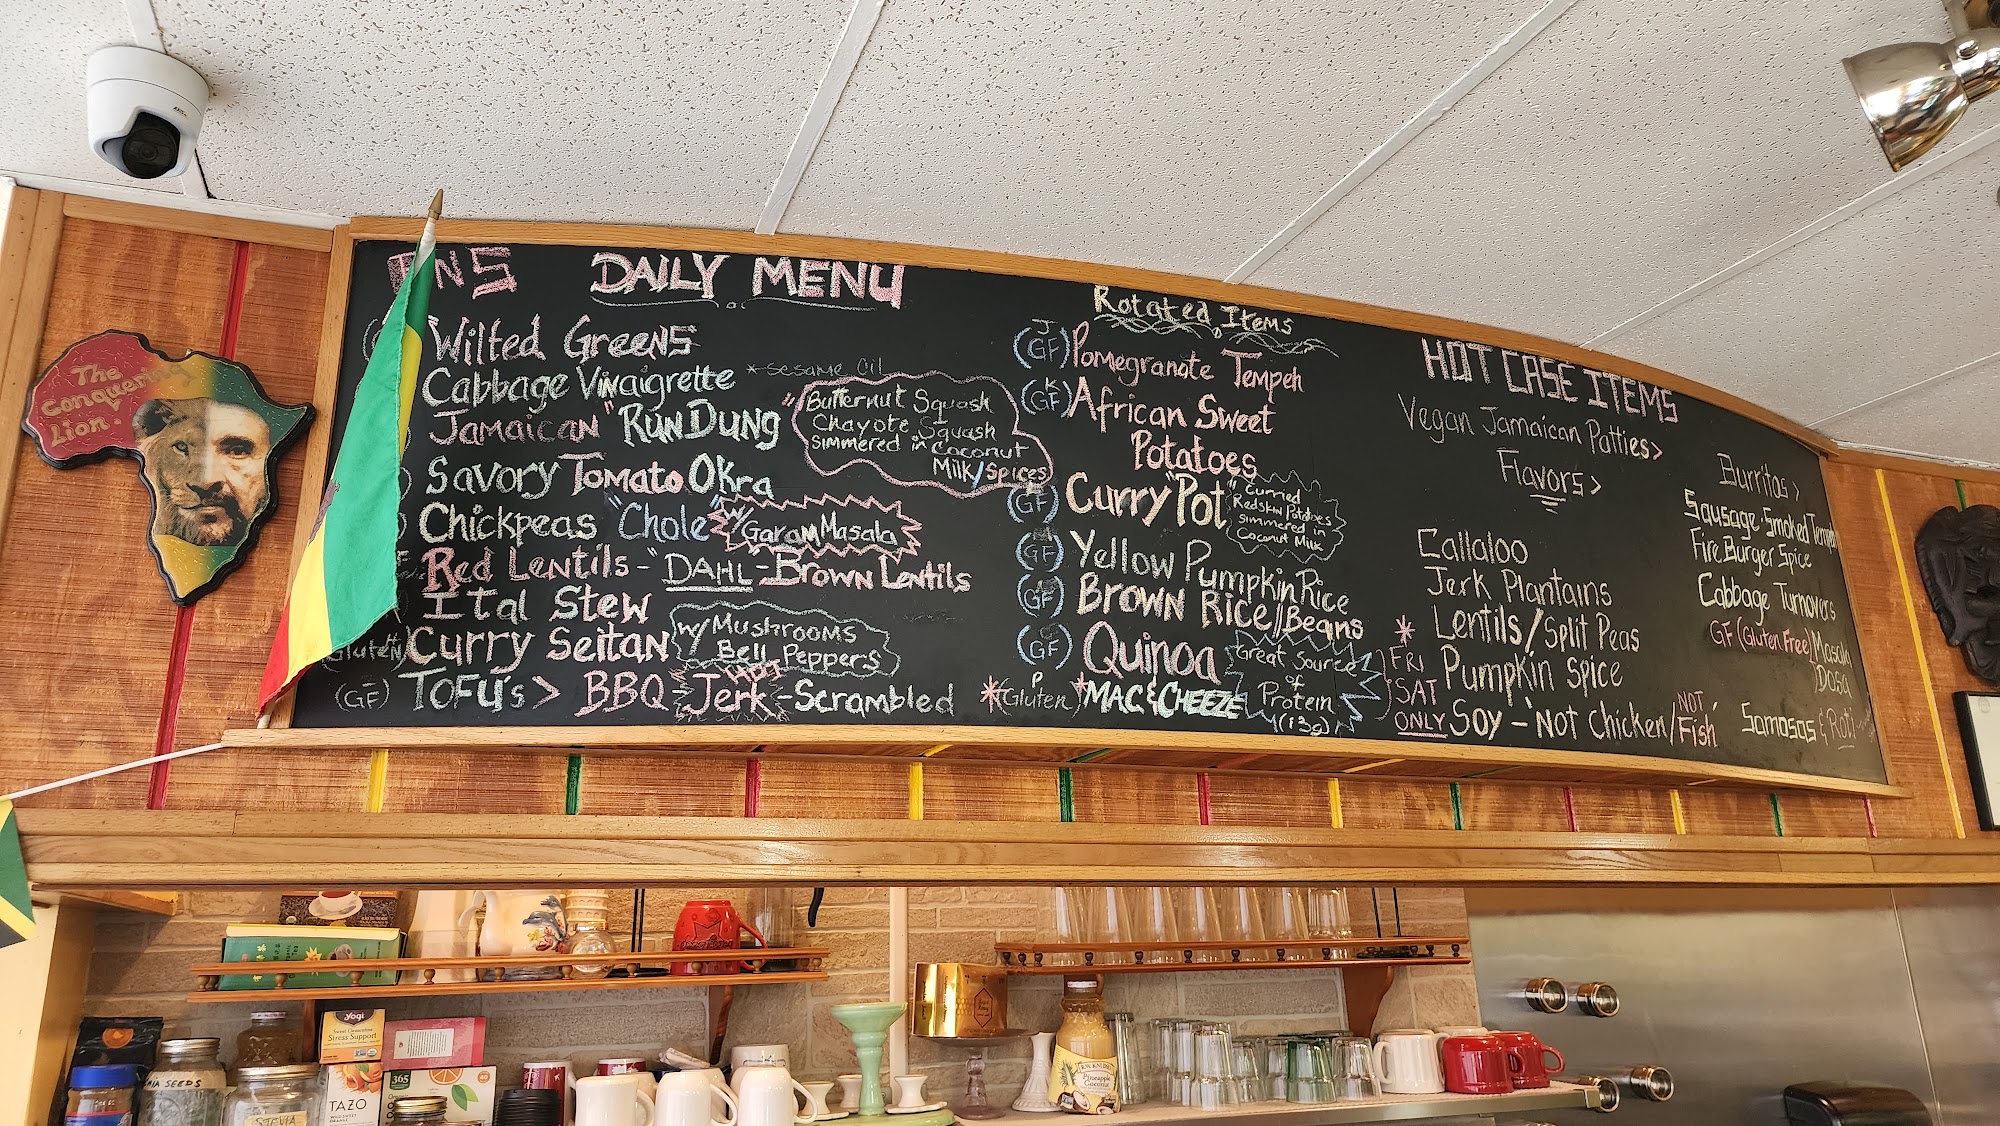 The
Conquering
Lion
NS DAILY MENU
Wilted Greens
Cabbage Vinaigrette *-sesame Oil
Jamaican "RunDung"
Butternut Squash
Chayote Squash
Simmered in Coconut
Milk/Spices
Savory Tomato Okra
Chickpeas "Chole" w/ Garam Masala
Red Lentils - "DAHL - Brown Lentils
Ital Stew
(Gluten) Curry Seitan w/ Mushrooms
Bell Peppers
(GF) TOFU's > BBQ - Jerk - Scrambled
Rotated Items
J
(GF) Pomegranate Tempeh
K
(GF) African Sweet
Potatoes
(GF) Curry "Pot"
Curried
Redskin Potatoes
simmered in
Coconut Milk
(GF) Yellow Pumpkin Rice
(GF) Brown Rice//Beans
(GF) Quinoa
Great Source
of
Protein
(13g)
P
*(Gluten)* MAC&CHEEZE
*
FRI
SAT
ONLY
HOT CASE ITEMS
Vegan Jamaican Patties>
Flavors >
Callaloo
Jerk Plantains
Lentils/Split Peas
Pumpkin Spice
Soy - 'Not Chicken/'NOT'
Fish'
Burritos >
Sausage Smoked Tempeh
Fire Burger Spice
Cabbage Turnovers
GF (Gluten Free) Masala
Dosa
Samosas & Roti
AXIS
yogi
Stress Support
365
TAZO
CHIA SEEDS
STEVIA
Pineapple
Coconut